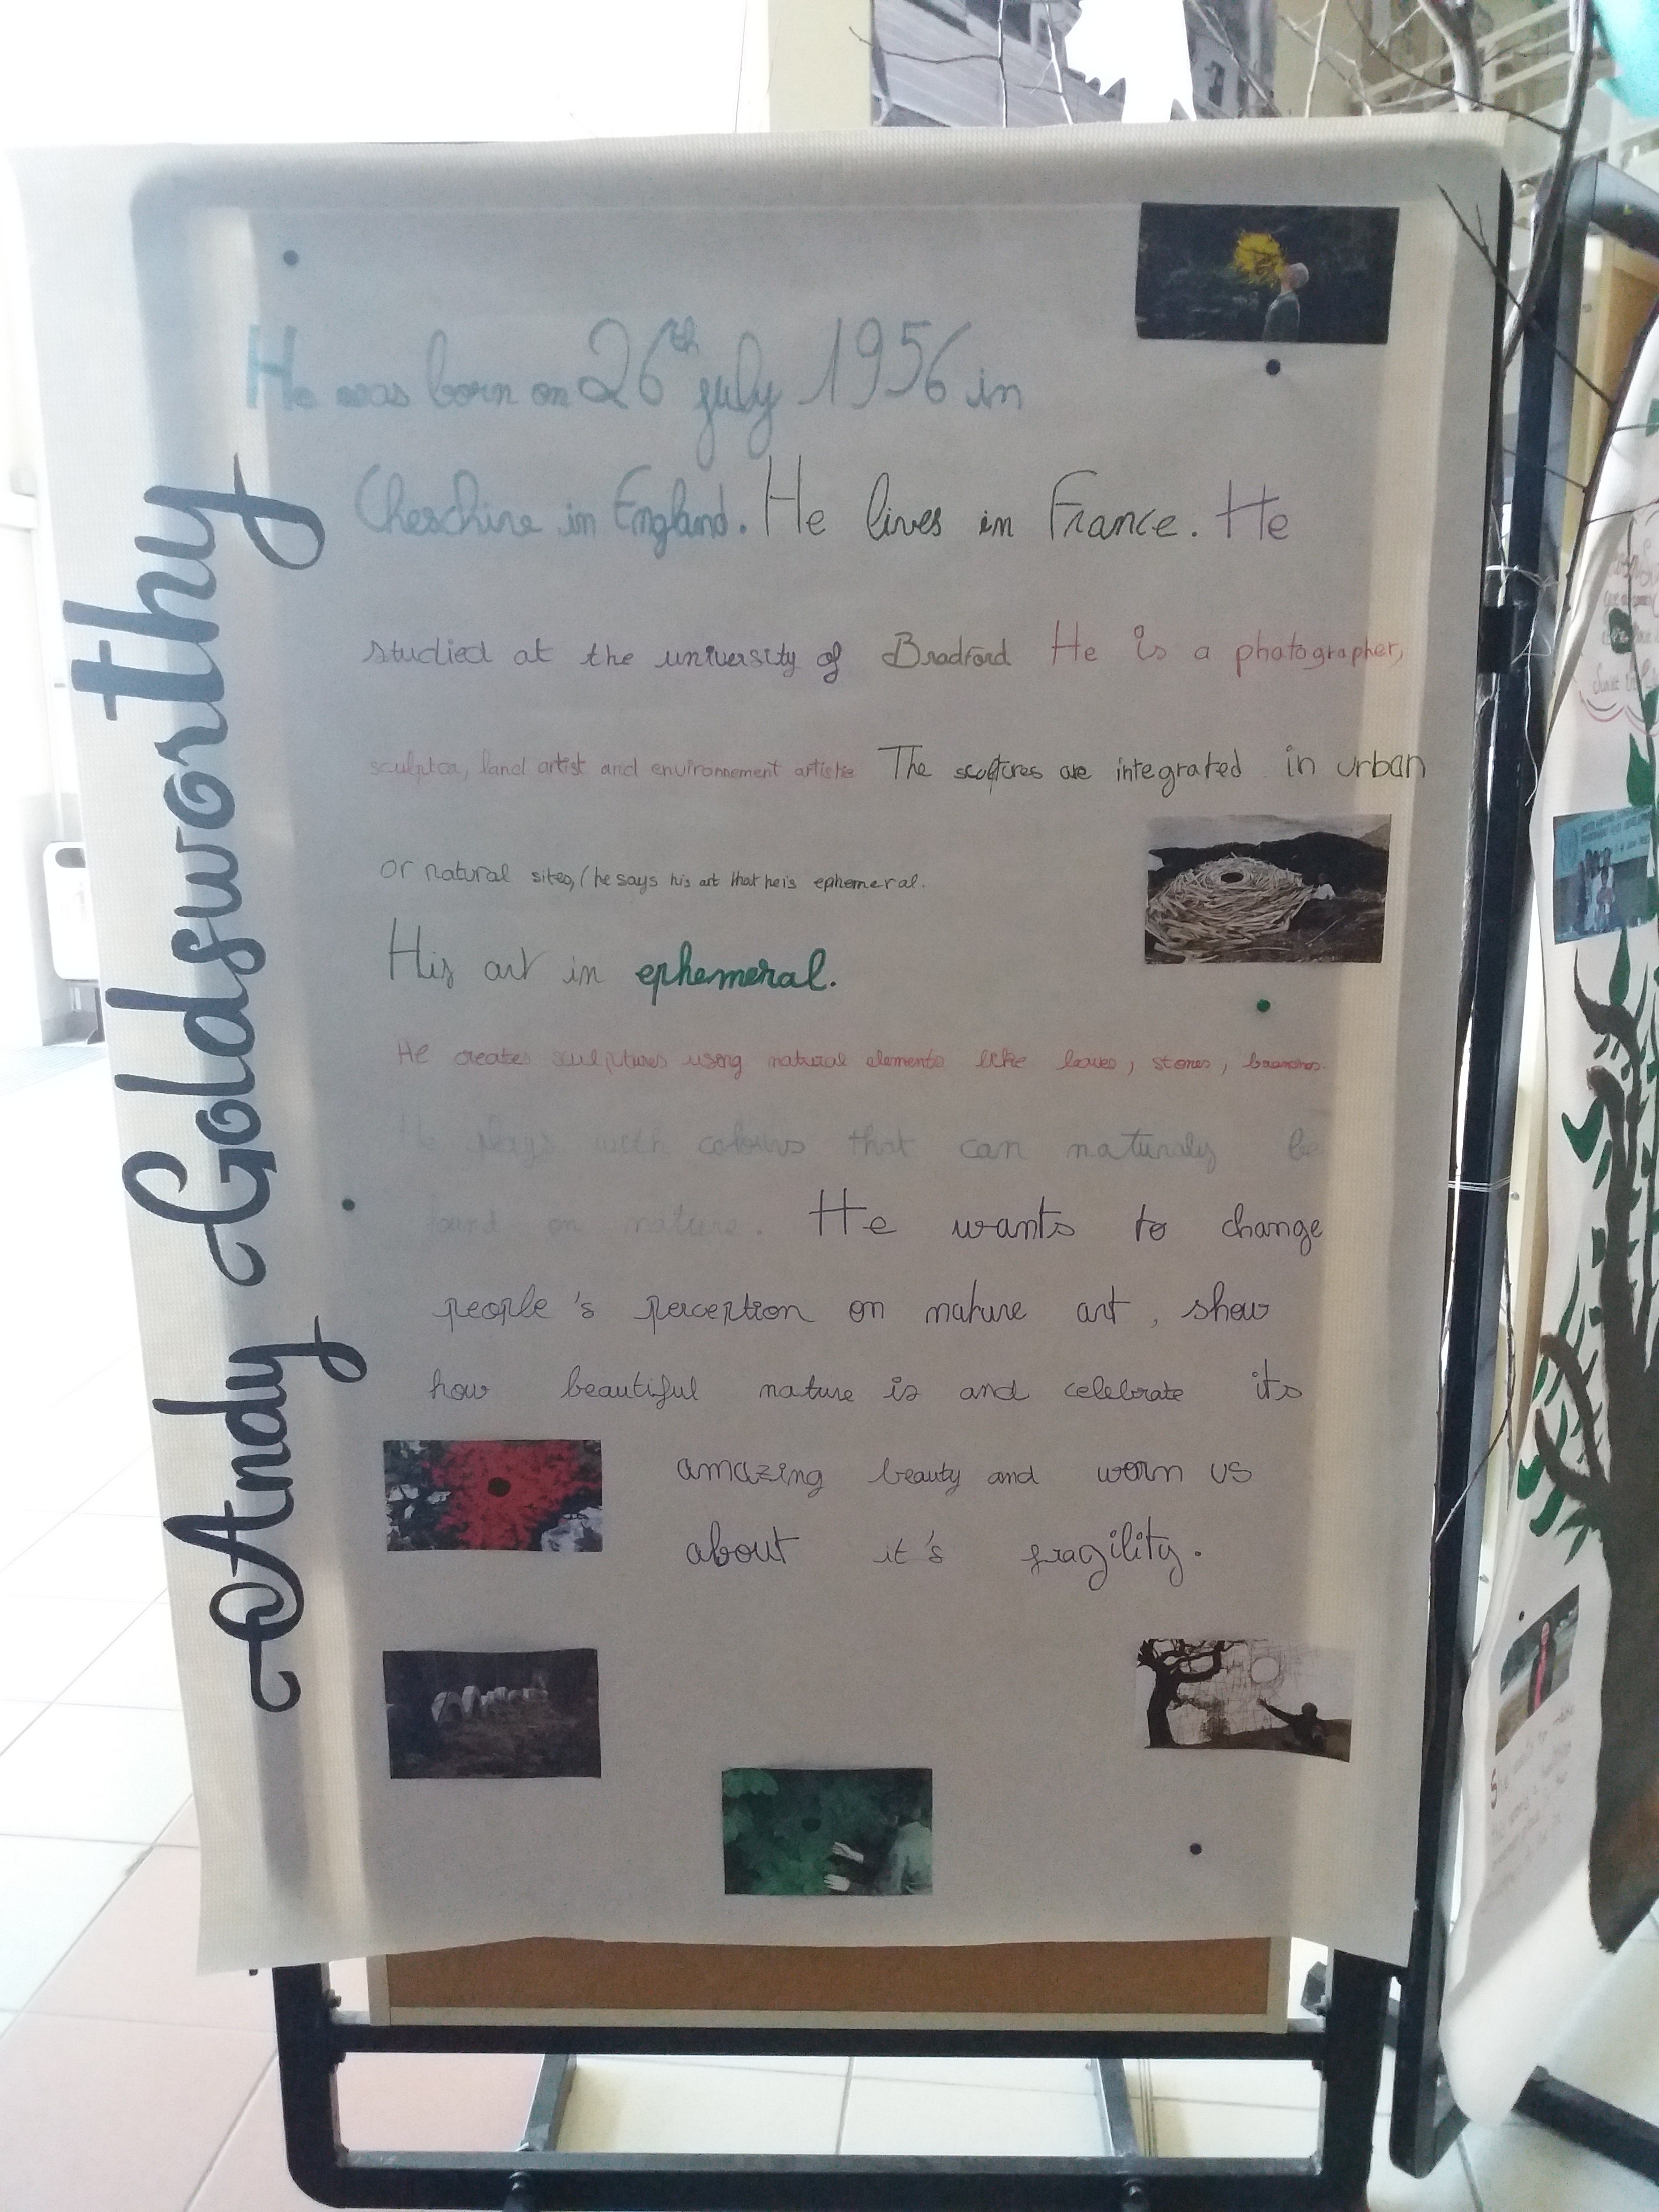 Andy Goldsworthy
He was born on 26th july 1956 in
Cheschire in England. He lives in France. He
studied at the university of Bradford He is a photographer,
sculptor, land artist and environnement artiste The sculptures are integrated in urban
or natural sites, (he says his art that he is ephemeral.
His art in ephemeral.
He creates sculptures using natural elements like leaves, stones, branches.
He plays with colours that can naturaly be
found on nature. He wants to change
people's perception on nature art, show
how beautiful nature is and celebrate its
amazing beauty and worn us
about it's fragility.